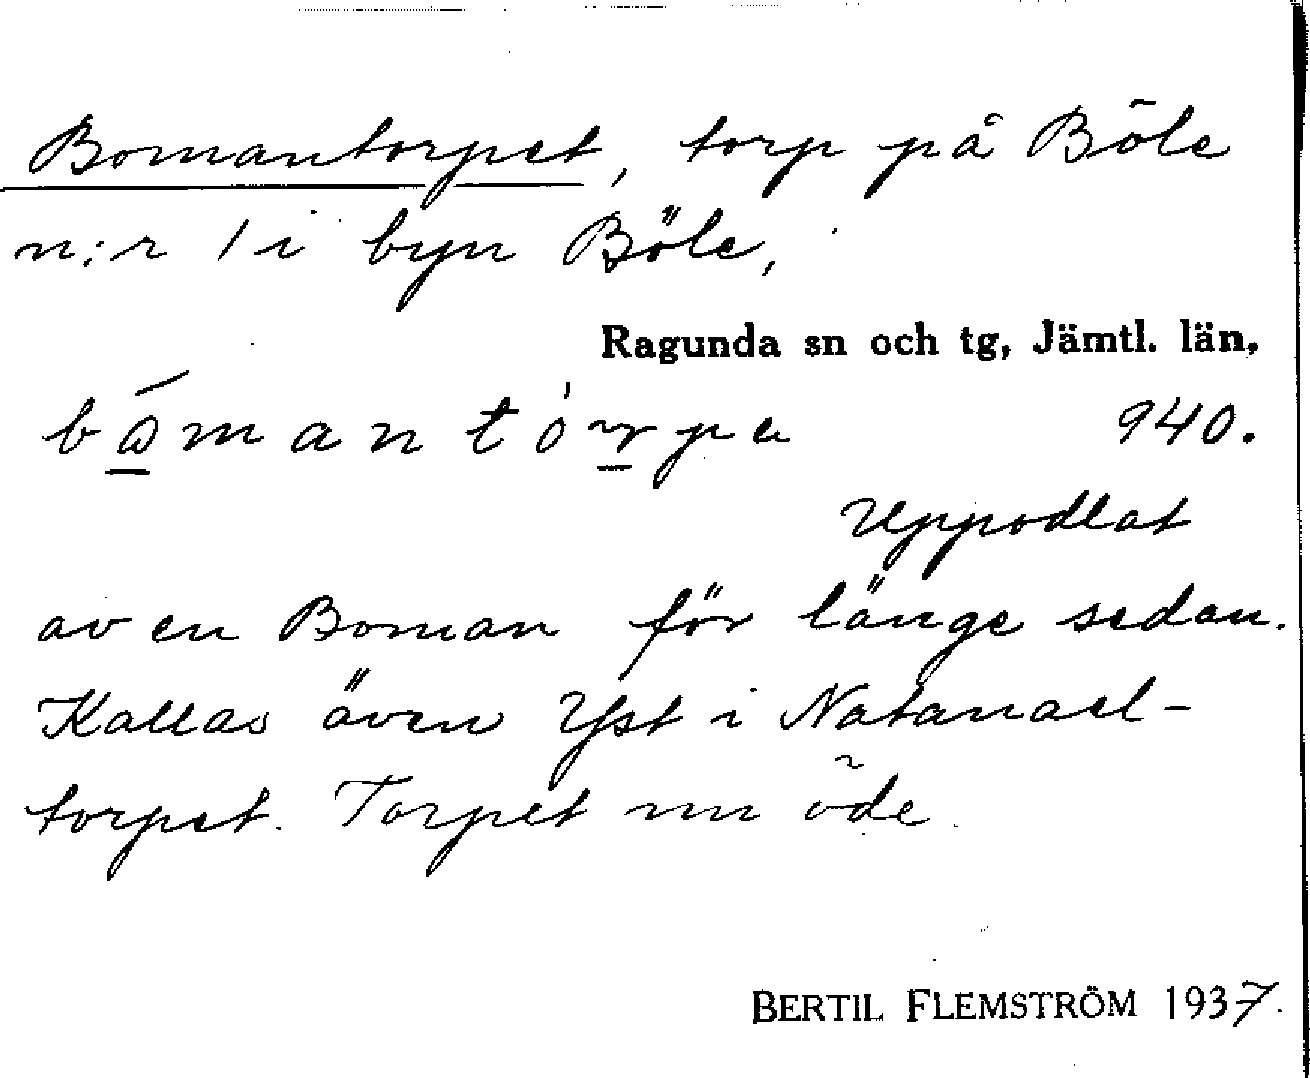 Bomantorpet, torp på Böle
n:r 1 i byn Böle,
Ragunda sn och tg, Jämtl. län.
940.
Uppodlat
av en Boman för länge sedan.
Kallas även Yst i Natanael-
torpet. Torpet nu öde.
BERTIL FLEMSTRÖM 1937.